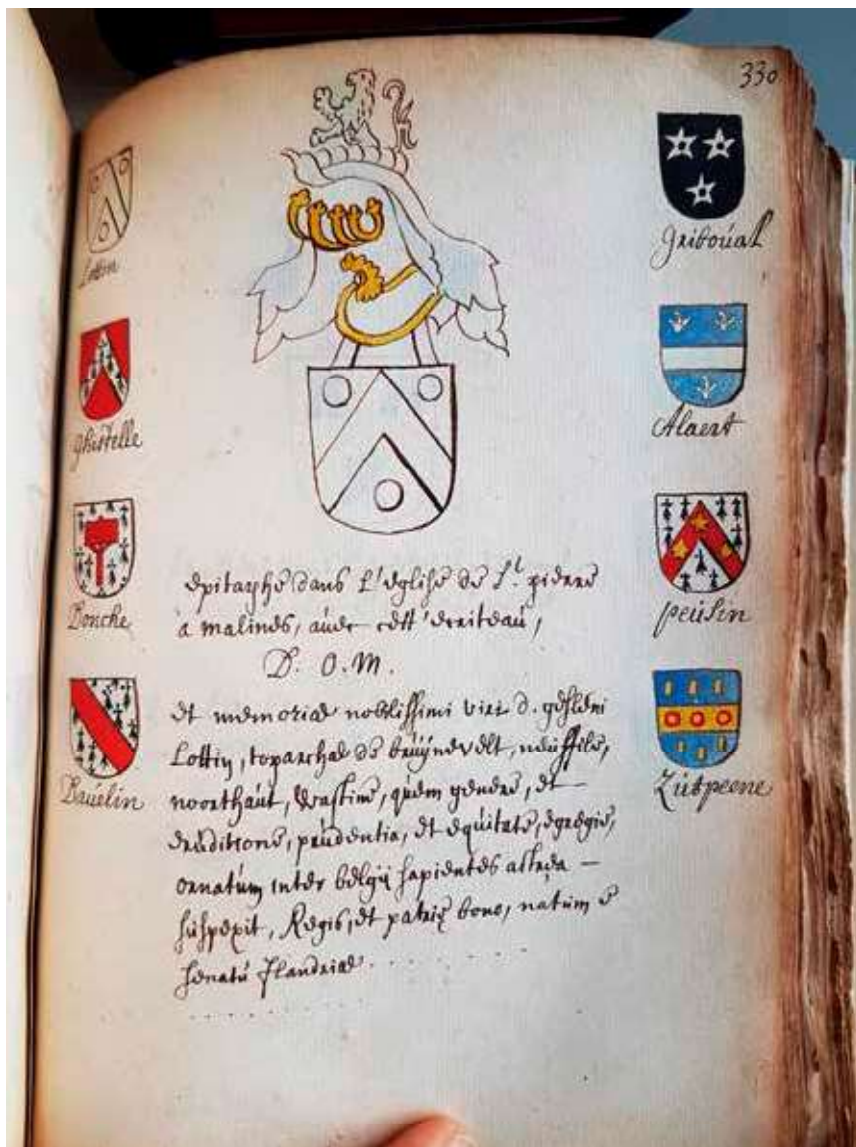 330
Lottin
Ghistelle
Bonche
Bauelin
Griboúal
Alaert
peúsin
Zútpeene
epitaphe dans L'eglise de St. pierre
a malines, auec cett' escriteaú,
D. O. M.
et memoriæ nobilissimi viri d. gisleni
Lottin, toparchæ de brúynevelt,
noorthoút, Wastine, qúem genere, et
erúditione, prúdentia, et eqúitate, egregie,
ornatúm inter belgii sapientes astræa
súspexit, Regis, et patriæ bono, natúm e
senatú Flandriæ . . . . . . . .
. . . . . . . . . .